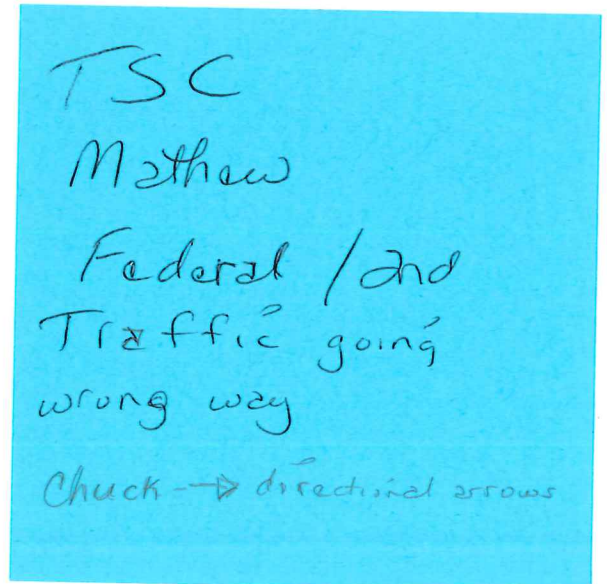 TSC
Mathew
Federal / 2nd
Traffic going
wrong way
Chuck --> directional arrows